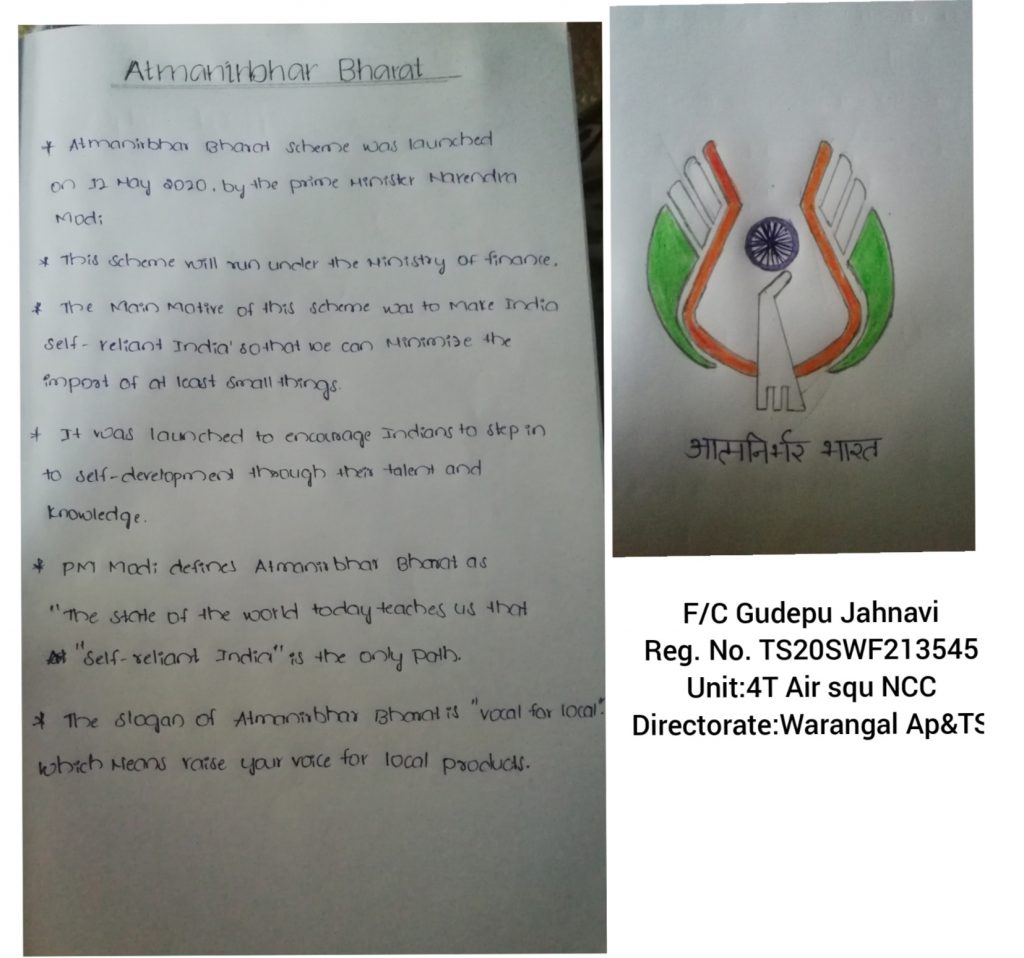 Atmanirbhar Bharat
* Atmanirbhar Bharat scheme was launched
on 12 May 2020, by the prime Minister Narendra
Modi
* This scheme will run under the Ministry of finance.
* The Main Motive of this scheme was to Make India
self-reliant India' so that we can Minimise the
import of at least small things.
* It was launched to encourage Indians to step in
to self-development through their talent and
knowledge.
* PM Modi defines Atmanirbhar Bharat as
"The state of the world today teaches us that
"self-reliant India" is the only path.
* The slogan of Atmanirbhar Bharat is "vocal for local".
which Means raise your voice for local products.
आत्मनिर्भर भारत
F/C Gudepu Jahnavi
Reg. No. TS20SWF213545
Unit:4T Air squ NCC
Directorate:Warangal Ap&TS